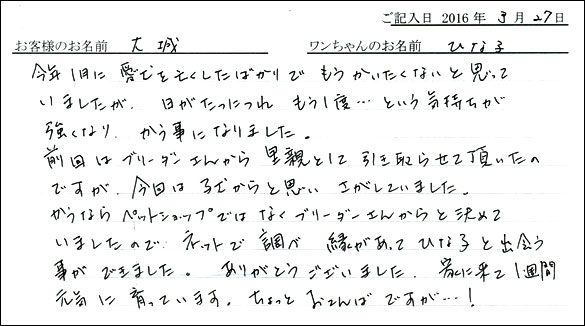 ご記入日 2016年 3月 27日
お客様のお名前 大城 ワンちゃんのお名前 ひな子
今年1月に愛犬を亡くしたばかりで もうかいたくないと思って
いましたが、日がたつにつれ もう1度…という気持ちが
強くなり、かう事になりました。
前回はブリーダーさんから里親として引き取らせて頂いたの
ですが、今回は子犬からと思い さがしていました。
かうならペットショップではなくブリーダーさんからと決めて
いましたので、ネットで調べ 縁があってひな子と出会う
事ができました。ありがとうございました。家に来て1週間
元気に育っています。ちょっと おてんば ですが…！